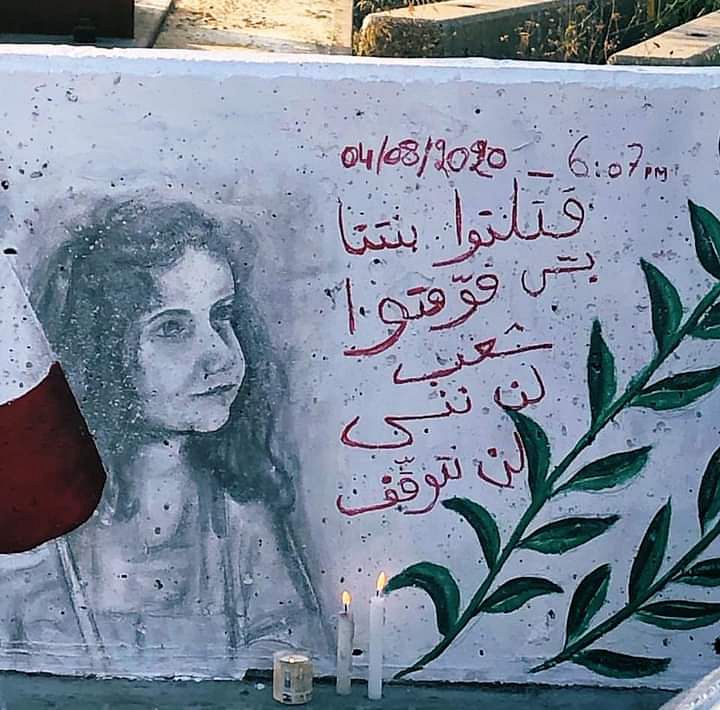 04/08/2020 _ 6:07PM
قتلتوا بنتنا
بس فوّقتوا
شعب
لن ننسى
لن نتوقّف